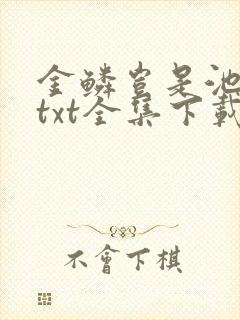 金鱗豈是池
txt全集下載
不會下棋